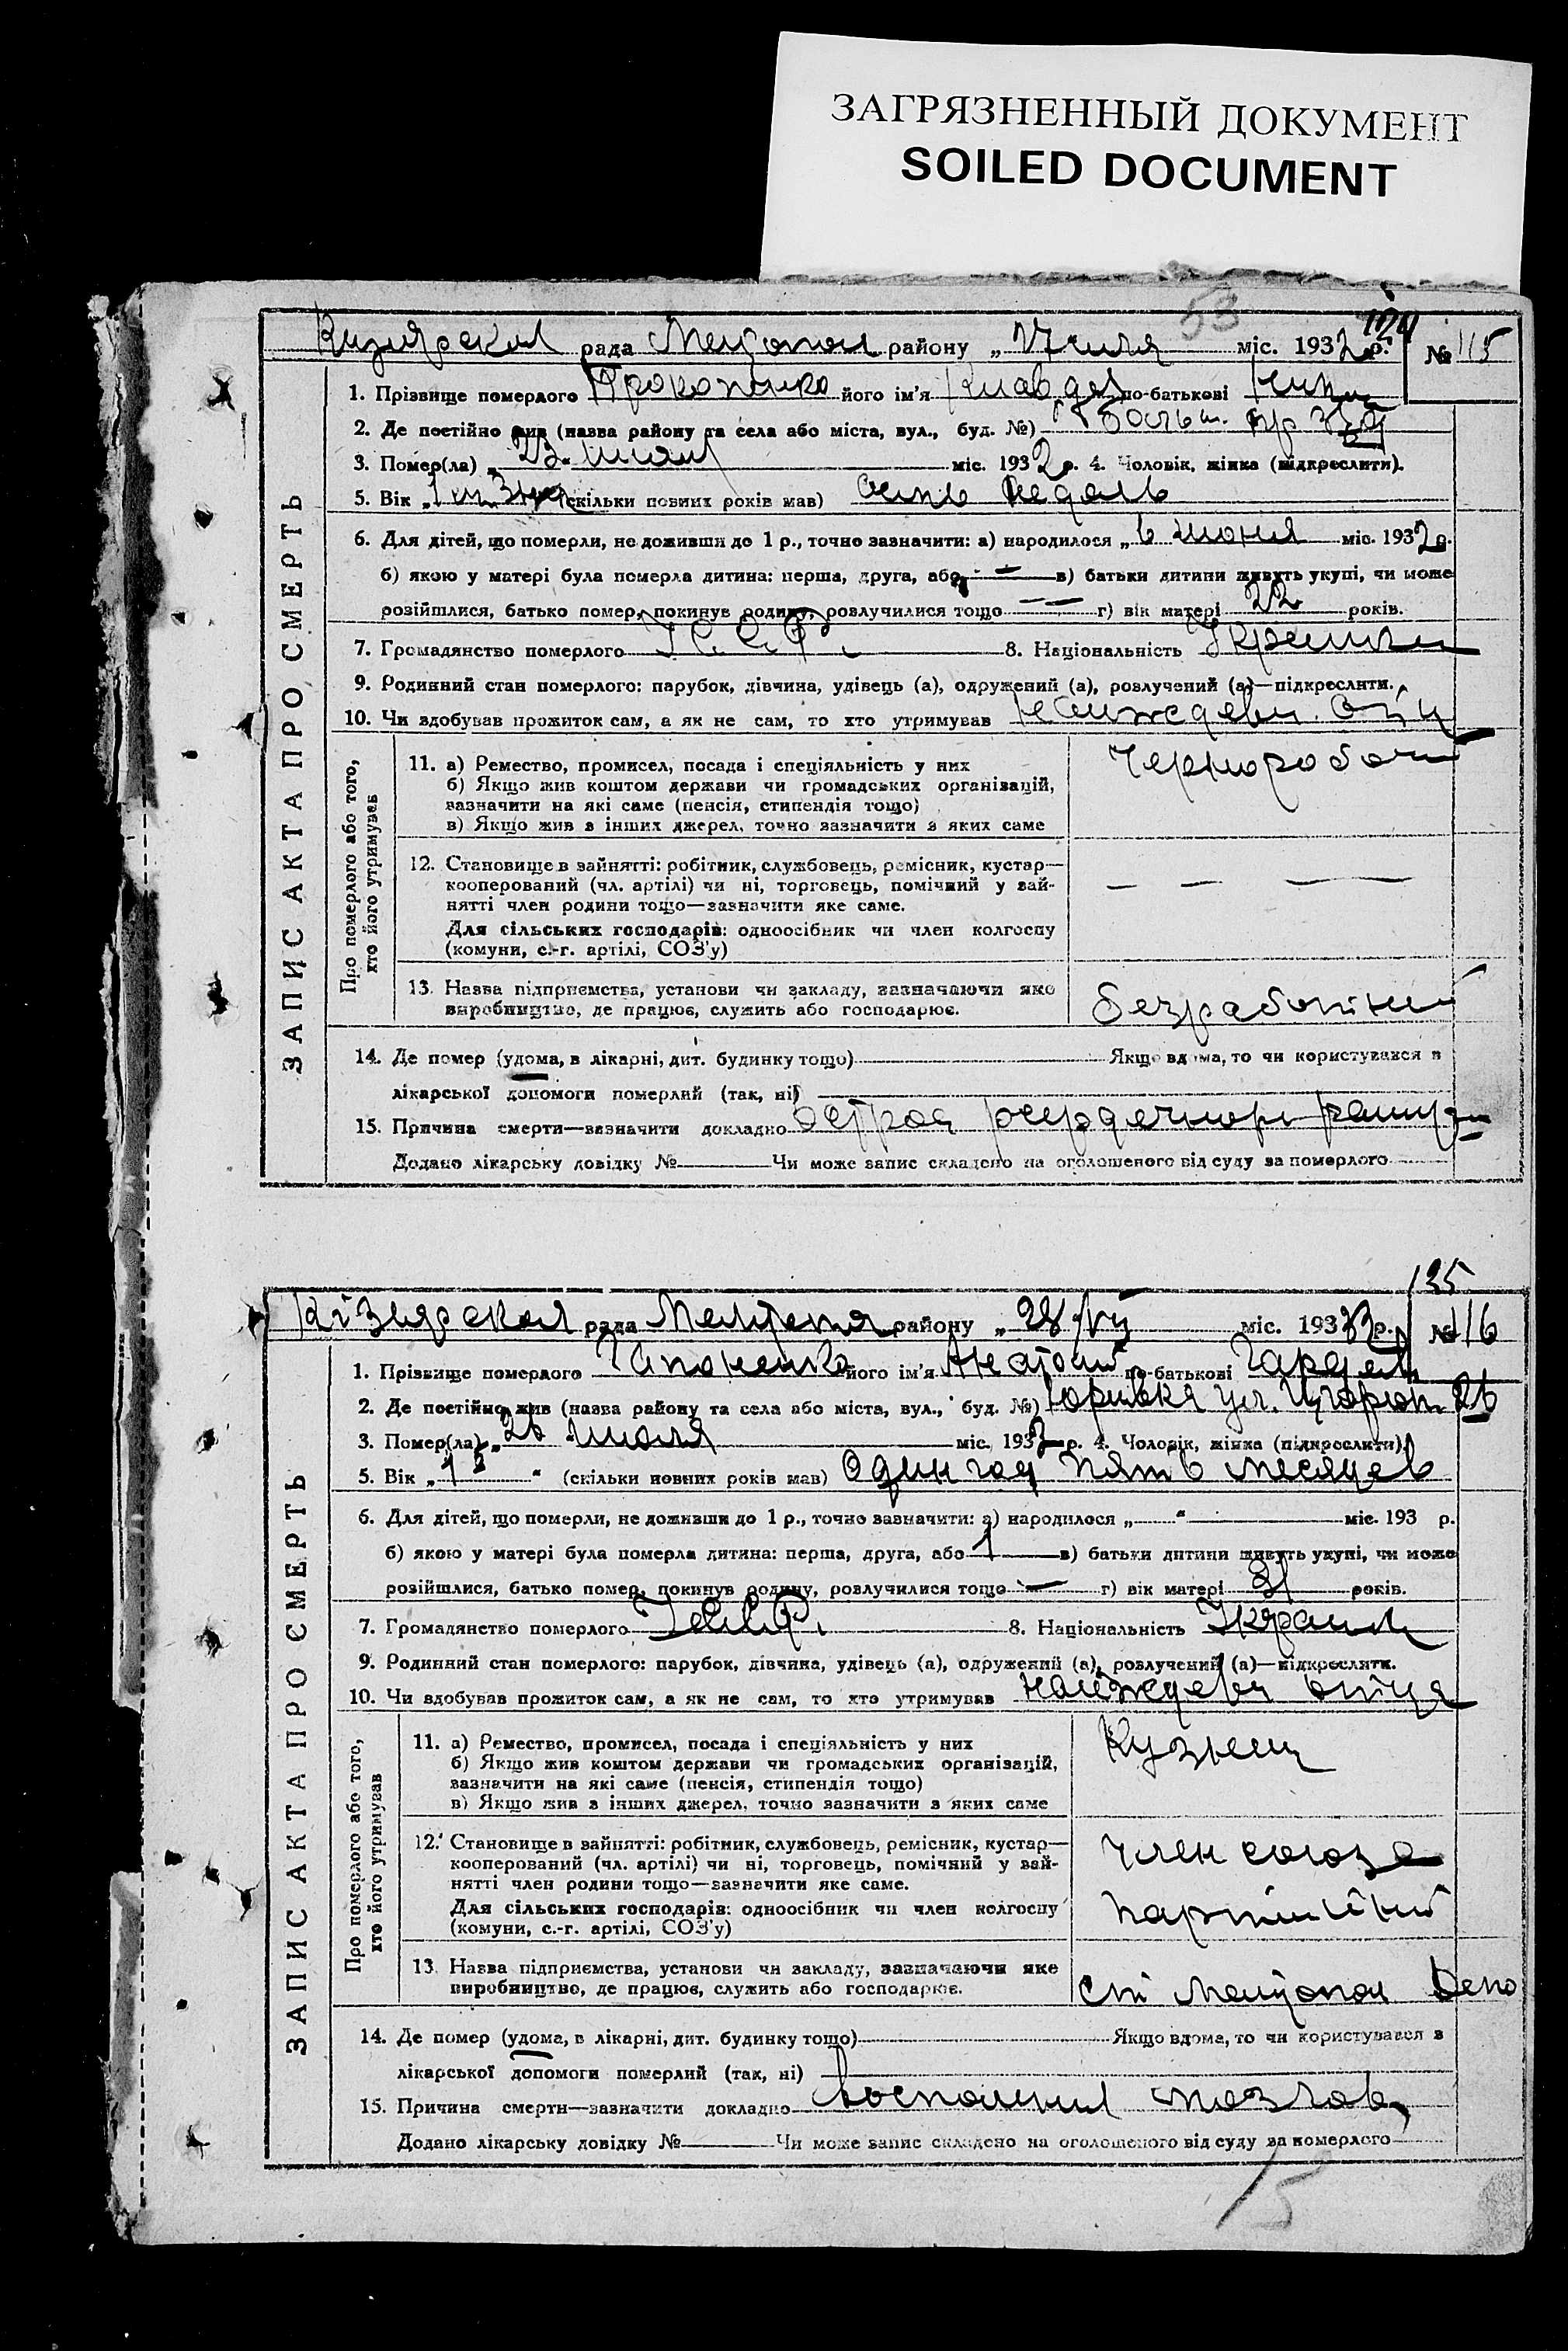 ЗАГРЯЗНЕННЫЙ ДОКУМЕНТ
SOILED DOCUMENT
53
124
Кизиярская рада Мелітопол району „27 июля міс. 1932 р. № 115
ЗАПИС АКТА ПРО СМЕРТЬ
1. Прізвище померлого Прокопенко його ім'я Клавдя по-батькові
2. Де постійно жив (назва району та села або міста, вул., буд. №)
3. Помер(ла) „23 июля міс. 1932 р. 4. Чоловік, жінка (підкреслити).
5. Вік (скільки повних років мав) семь недель
6. Для дітей, що померли, не доживши до 1 р., точно зазначити: а) народилося „6 июня міс. 1932 р.
б) якою у матері була померла дитина: перша, друга, або — в) батьки дитини живуть укупі, чи може
розійшлися, батько помер, покинув родину, розлучилися тощо — — г) вік матері 22 років.
7. Громадянство померлого У.С.С.Р. 8. Національність
9. Родинний стан померлого: парубок, дівчина, удівець (а), одружений (а), розлучений (а)—підкреслити.
10. Чи здобував прожиток сам, а як не сам, то хто утримував
Про померлого або того,
хто його утримував
11. а) Ремество, промисел, посада і спеціяльність у них
б) Якщо жив коштом держави чи громадських організацій,
зазначити на які саме (пенсія, стипендія тощо)
в) Якщо жив з інших джерел, точно зазначити з яких саме
12. Становище в зайнятті: робітник, службовець, ремісник, кустар—
кооперований (чл. артілі) чи ні, торговець, помічний у зай-
нятті член родини тощо—зазначити яке саме.
— — —
Для сільських господарів: одноосібник чи член колгоспу
(комуни, с.-г. артілі, СОЗ'у)
13. Назва підприємства, установи чи закладу, зазначаючи яке
виробництво, де працює, служить або господарює.
безработный
14. Де помер (удома, в лікарні, дит. будинку тощо) Якщо вдома, то чи користувався з
лікарської допомоги померлий (так, ні)
15. Причина смерти—зазначити докладно острая
Додано лікарську довідку № Чи може запис складено на оголошеного від суду за померлого
125
Кізиярская рада району „28/VII міс. 193 р. № 116
ЗАПИС АКТА ПРО СМЕРТЬ
1. Прізвище померлого Гапоненко його ім'я Анатолий по-батькові
2. Де постійно жив (назва району та села або міста, вул., буд. №) Юривка ул. 26
3. Помер(ла) „26 июля міс. 1932 р. 4. Чоловік, жінка (підкреслити)
5. Вік (скільки повних років мав) Один год пять месяцев
6. Для дітей, що померли, не доживши до 1 р., точно зазначити: а) народилося „ “ міс. 193 р.
б) якою у матері була померла дитина: перша, друга, або 1 в) батьки дитини живуть укупі, чи може
розійшлися, батько помер, покинув родину, розлучилися тощо — г) вік матері 31 років.
7. Громадянство померлого У.С.С.Р. 8. Національність
9. Родинний стан померлого: парубок, дівчина, удівець (а), одружений (а), розлучений (а)—підкреслити.
10. Чи здобував прожиток сам, а як не сам, то хто утримував на иждевен отца
Про померлого або того,
хто його утримував
11. а) Ремество, промисел, посада і спеціяльність у них
Кузнец
б) Якщо жив коштом держави чи громадських організацій,
зазначити на які саме (пенсія, стипендія тощо)
в) Якщо жив з інших джерел, точно зазначити з яких саме
12. Становище в зайнятті: робітник, службовець, ремісник, кустар—
кооперований (чл. артілі) чи ні, торговець, помічний у зай-
нятті член родини тощо—зазначити яке саме.
Член союза
Для сільських господарів: одноосібник чи член колгоспу
(комуни, с.-г. артілі, СОЗ'у)
13. Назва підприємства, установи чи закладу, зазначаючи яке
виробництво, де працює, служить або господарює.
ст Мелітопол Депо
14. Де помер (удома, в лікарні, дит. будинку тощо) Якщо вдома, то чи користувався з
лікарської допомоги померлий (так, ні)
15. Причина смерти—зазначити докладно воспаления мозгов
Додано лікарську довідку № Чи може запис складено на оголошеного від суду за померлого
15